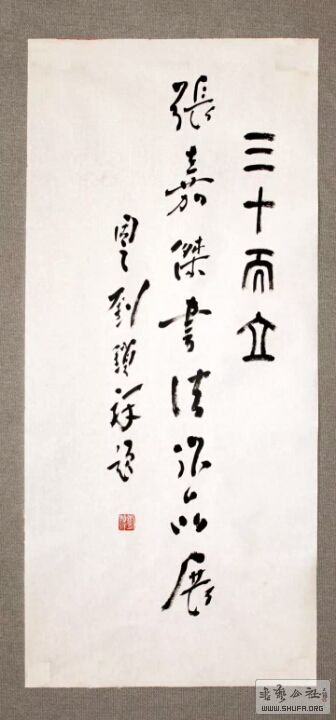 三十而立
張嘉傑書法作品展
劉鎖祥題
書藝公社
WWW.SHUFA.ORG